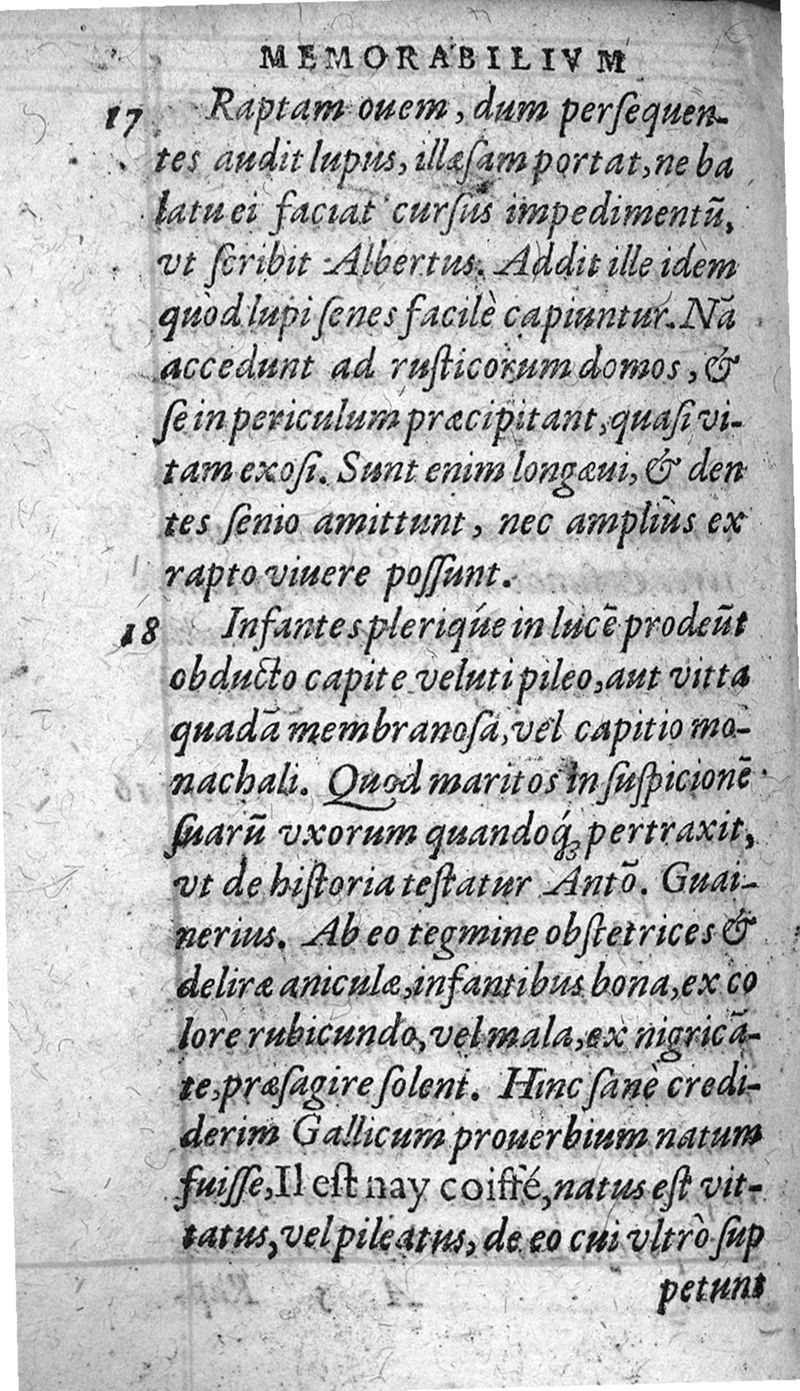 MEMORABILIVM
17 Raptam ouem, dum perſequen-
tes audit lupus, illæſam portat, ne ba
latu ei faciat curſus impedimentũ,
vt ſcribit Albertus. Addit ille idem
quòd lupi ſenes facilè capiuntur. Nã
accedunt ad ruſticorum domos, &
ſe in periculum præcipitant, quaſi vi-
tam exoſi. Sunt enim longæui, & den
tes ſenio amittunt, nec ampliùs ex
rapto viuere poſſunt.
18 Infantes pleriqúe in lucẽ prodeũt
obducto capite veluti pileo, aut vitta
quadã membranoſa, vel capitio mo-
nachali. Quod maritos in ſuſpicionẽ
ſuarũ vxorum quandoq́ꝫ pertraxit,
vt de hiſtoria teſtatur Antõ. Guai-
nerius. Ab eo tegmine obſtetrices &
deliræ aniculæ, infantibus bona, ex co
lore rubicundo, vel mala, ex nigricã-
te, præſagire ſolent. Hinc ſanè credi-
derim Gallicum prouerbium natum
fuiſſe, Il eſt nay coiffé, natus eſt vit-
tatus, vel pileatus, de eo cui vltrò ſup
petunt